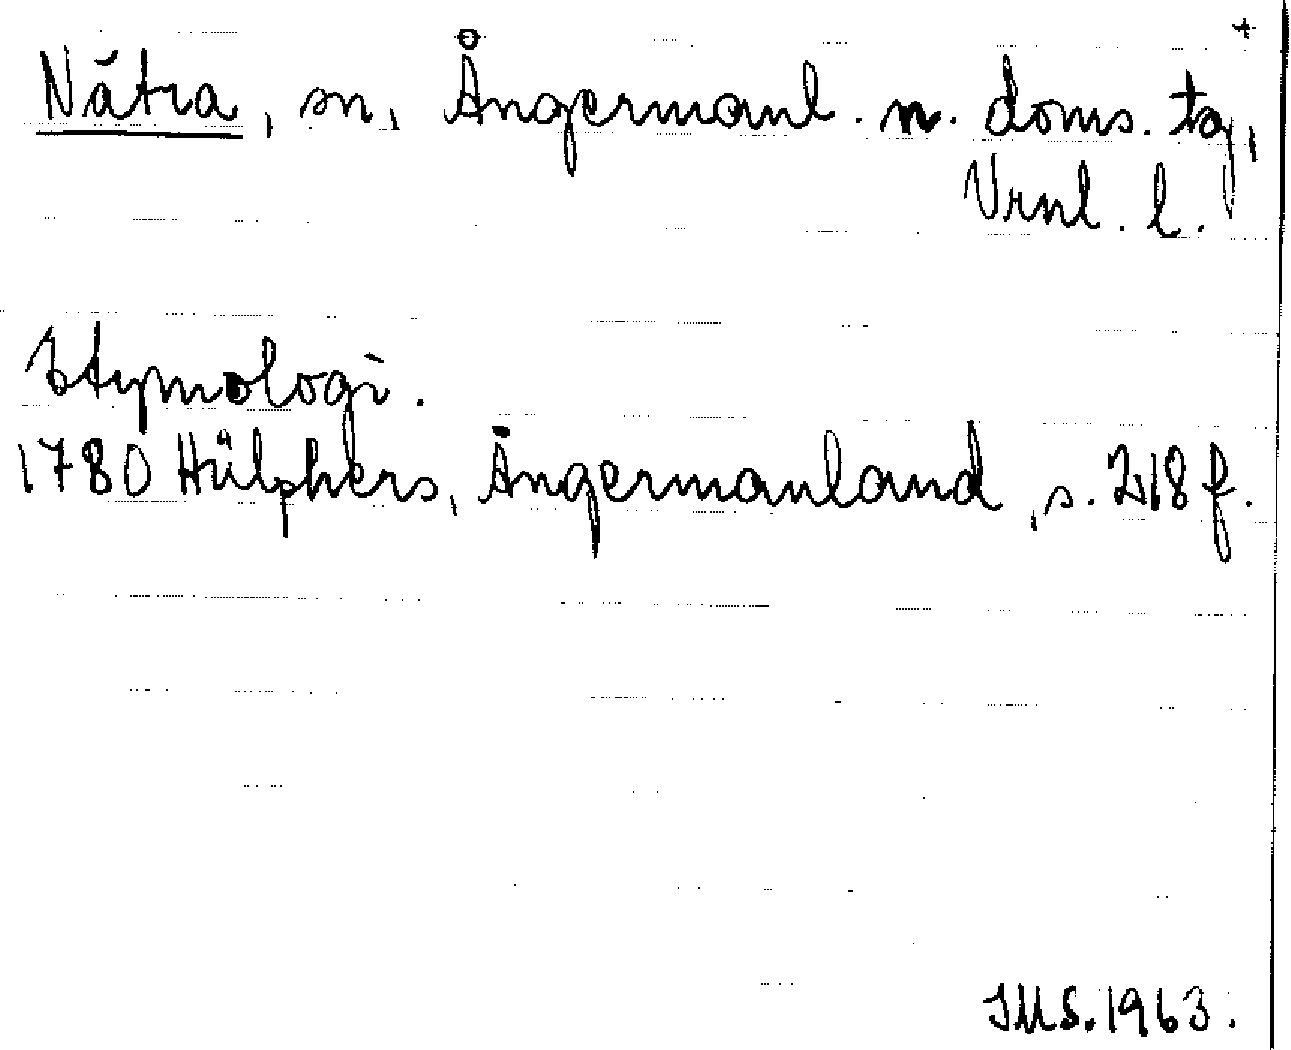 +
Nätra, sn, Ångermanl. n. doms. tg,
Vrnl. l.
Etymologi.
1780 Hülphers, Ångermanland, s. 218 f.
IMS. 1963.